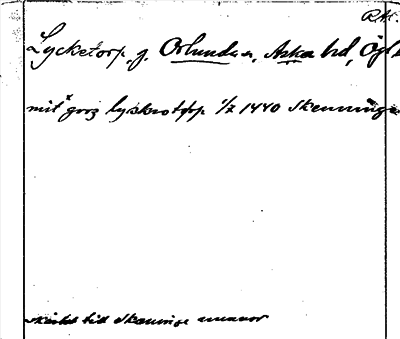 RA.
Lycketorp, g. Örlunda sn, Aska hd, Ögl
mit goz lyskrotorp 1/2 1440 Skenninge
till Skenninge